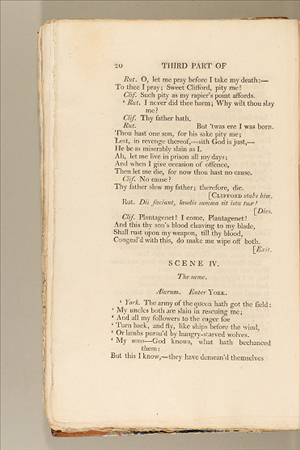 20 THIRD PART OF
Rut. O, let me pray before I take my death:—
To thee I pray; Sweet Clifford, pity me!
Clif. Such pity as my rapier's point affords.
‘ Rut. I never did thee harm; Why wilt thou slay
me?
Clif. Thy father hath.
Rut. But 'twas ere I was born.
Thou hast one son, for his sake pity me;
Lest, in revenge thereof,—sith God is just,—
He be as miserably slain as I.
Ah, let me live in prison all my days;
And when I give occasion of offence,
Then let me die, for now thou hast no cause.
Clif. No cause?
Thy father slew my father; therefore, die.
[CLIFFORD stabs him.
Rut. Dii faciant, laudis summa sit ista tuæ!
[Dies.
Clif. Plantagenet! I come, Plantagenet!
And this thy son's blood cleaving to my blade,
Shall rust upon my weapon, till thy blood,
Congeal'd with this, do make me wipe off both.
[Exit.
SCENE IV.
The same.
Alarum. Enter YORK.
‘ York. The army of the queen hath got the field:
‘ My uncles both are slain in rescuing me;
‘ And all my followers to the eager foe
‘ Turn back, and fly, like ships before the wind,
‘ Or lambs pursu'd by hungry-starved wolves.
‘ My sons—God knows, what hath bechanced
them:
But this I know,—they have demean'd themselves